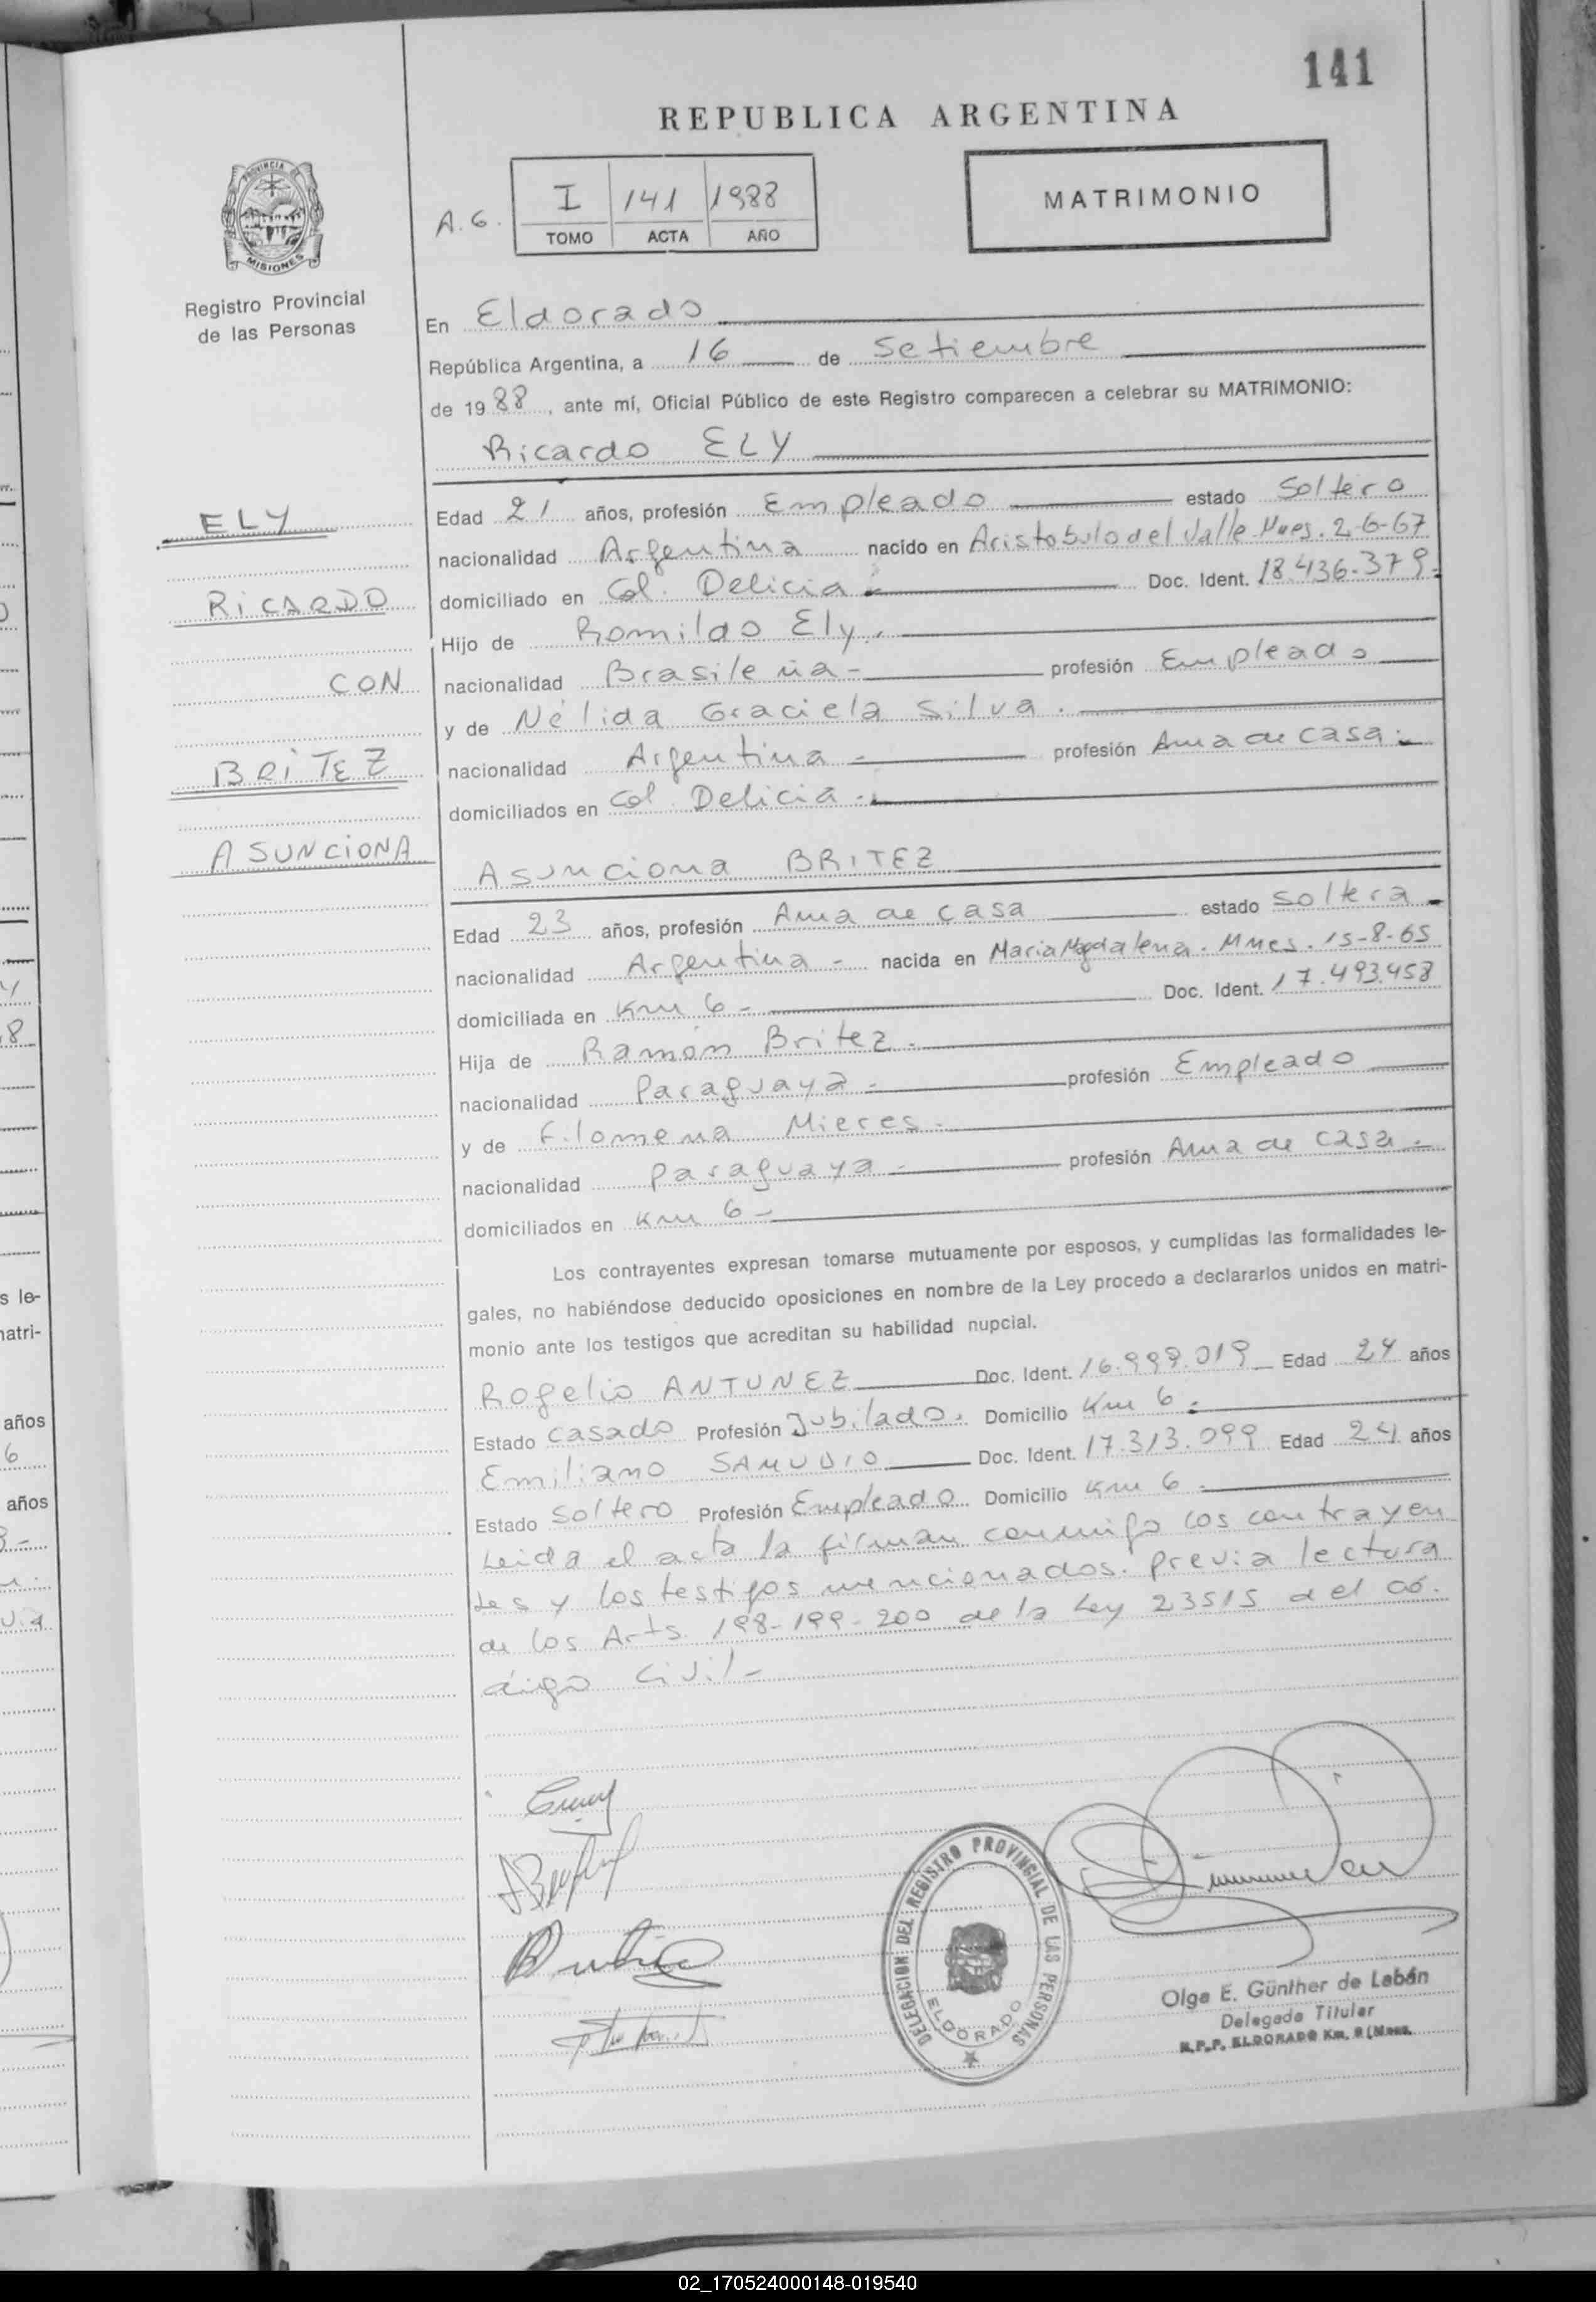 141
REPUBLICA ARGENTINA
PROVINCIA
MISIONES
Registro Provincial
de las Personas
A. G. I 141 1988
TOMO ACTA AÑO
MATRIMONIO
En Eldorado
República Argentina, a 16 de Setiembre
de 1988, ante mí, Oficial Público de este Registro comparecen a celebrar su MATRIMONIO:
Ricardo ELY
ELY
RICARDO
CON
BRITEZ
ASUNCIONA
Edad 21 años, profesión Empleado estado Soltero
nacionalidad Argentina nacido en Aristobulo del Valle. Mnes. 2-6-67
domiciliado en Col. Delicia.- Doc. Ident. 18.436.379.-
Hijo de Romildo Ely.
nacionalidad Brasileña- profesión Empleado
y de Nélida Graciela Silva.
nacionalidad Argentina - profesión Ama de casa.-
domiciliados en Col. Delicia.-
Asunciona BRITEZ
Edad 23 años, profesión Ama de casa estado soltera -
nacionalidad Argentina - nacida en Maria Magdalena. Mnes. 15-8-65
domiciliada en Km 6 - Doc. Ident. 17.493.458
Hija de Ramón Britez.
nacionalidad Paraguaya - profesión Empleado
y de Filomena Mieres.
nacionalidad Paraguaya - profesión Ama de casa.-
domiciliados en Km 6 -
Los contrayentes expresan tomarse mutuamente por esposos, y cumplidas las formalidades le-
gales, no habiéndose deducido oposiciones en nombre de la Ley procedo a declararlos unidos en matri-
monio ante los testigos que acreditan su habilidad nupcial.
Rogelio ANTUNEZ Doc. Ident. 16.999.019 Edad 24 años
Estado Casado Profesión Jubilado. Domicilio Km 6.-
Emiliano SAMUDIO Doc. Ident. 17.313.099 Edad 24 años
Estado Soltero Profesión Empleado Domicilio Km 6.
Leida el acta la firman conmigo los contrayen
tes y los testigos mencionados. previa lectura
de los Arts. 198-199-200 de la Ley 23515 del Có.
digo Civil-
DELEGACION DEL REGISTRO PROVINCIAL DE LAS PERSONAS
ELDORADO
Olga E. Günther de Labán
Delegada Titular
R.P.P. ELDORADO Km. 9 (Mnes.
02_170524000148-019540